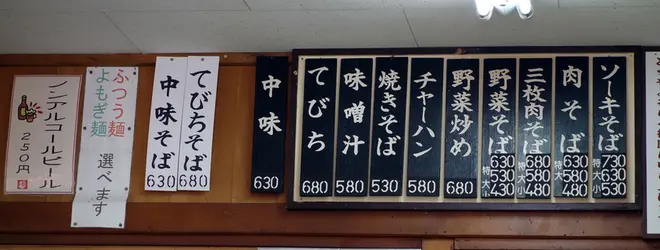 ソーキそば
特 730
大 630
小 530
肉そば
特 630
大 580
小 480
三枚肉そば
特 680
大 580
小 480
野菜そば
特 630
大 530
小 430
野菜炒め
680
チャーハン
580
焼きそば
530
味噌汁
580
てびち
680
中味
630
てびちそば
680
中味そば
630
ふつう麺
よもぎ麺
選べます
ノンアルコールビール
250円